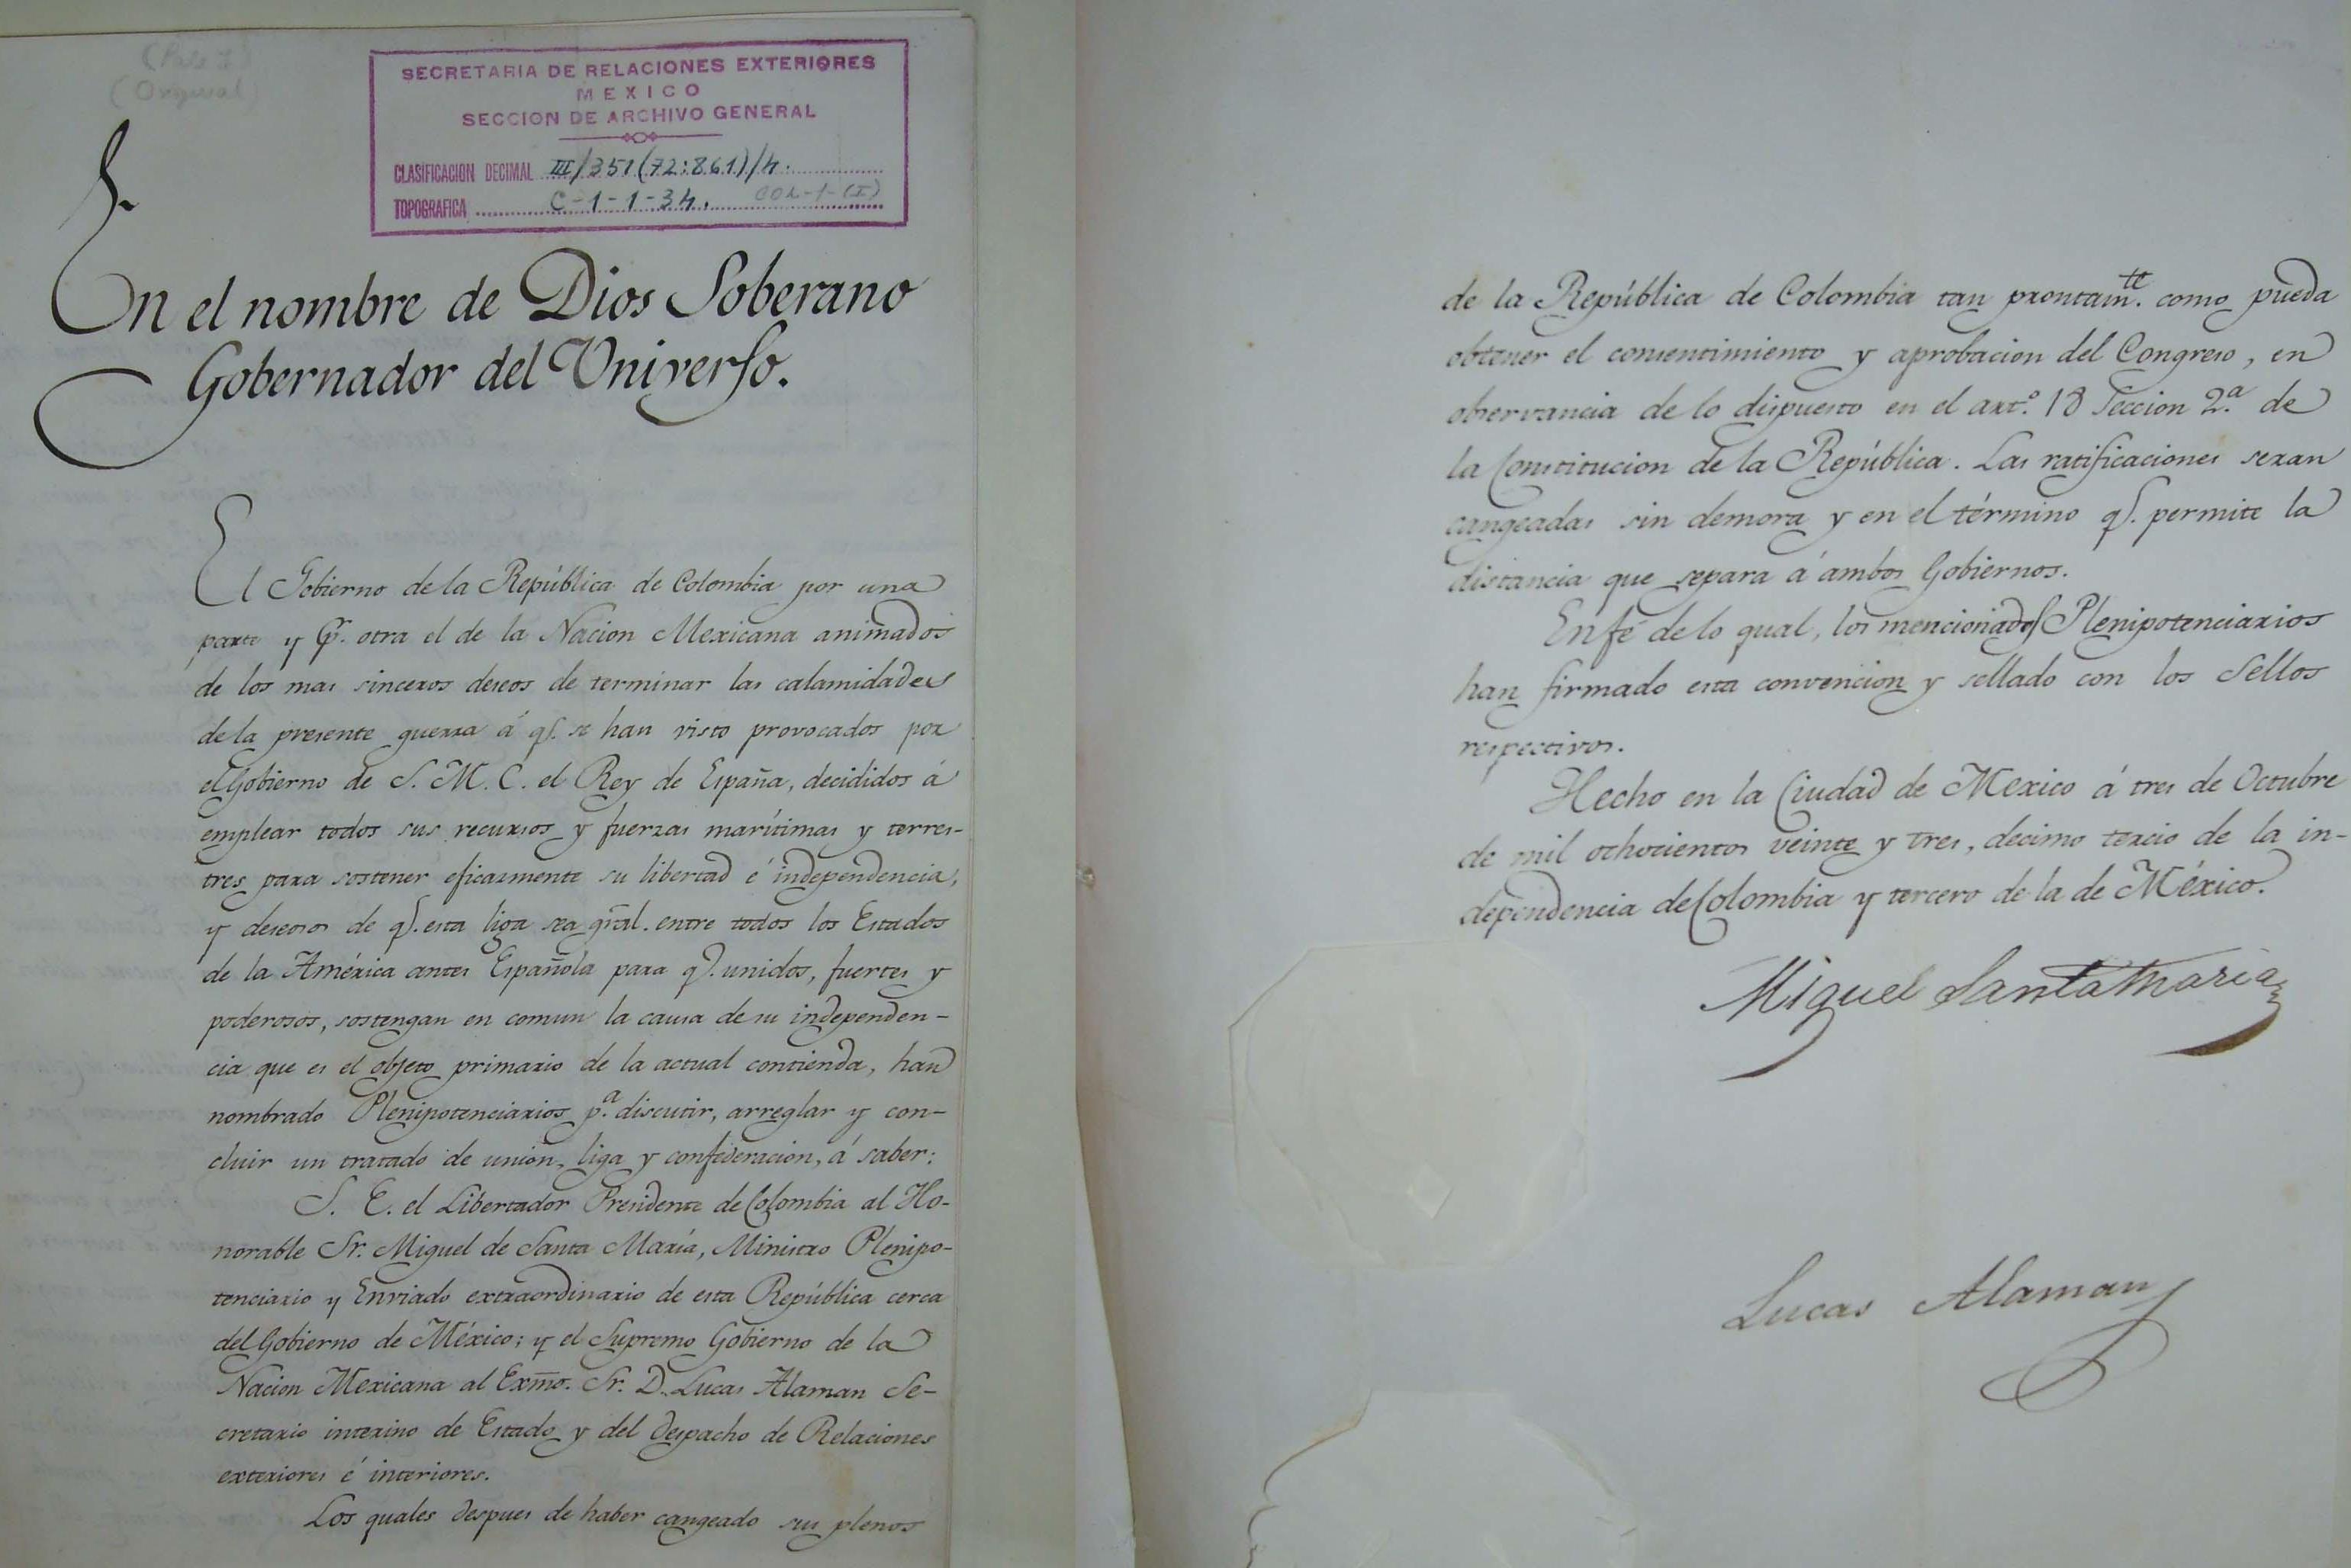 (Pate I)
(Original)
SECRETARIA DE RELACIONES EXTERIORES
MEXICO
SECCION DE ARCHIVO GENERAL
CLASIFICACION DECIMAL III/351(72:861)/4.
TOPOGRAFICA C-1-1-34. COL-1-(I)
En el nombre de Dios Soberano
Gobernador del Universo.
El Gobierno de la República de Colombia por una
parte y Pr. otra el de la Nacion Mexicana animados
de los mas sinceros deseos de terminar las calamidades
de la presente guerra á q. se han visto provocados por
el Gobierno de S. M. C. el Rey de España, decididos á
emplear todos sus recursos y fuerzas marítimas y terres-
tres para sostener eficazmente su libertad é independencia,
y deseosos de q. esta liga sea gral. entre todos los Estados
de la América antes Española para q. unidos, fuertes y
poderosos, sostengan en comun la causa de su independen-
cia que es el objeto primario de la actual contienda, han
nombrado Plenipotenciarios p.a discutir, arreglar y con-
cluir un tratado de union, liga y confederacion, á saber:
S. E. el Libertador Presidente de Colombia al Ho-
norable Sr. Miguel de Santa María, Ministro Plenipo-
tenciario y Enviado extraordinario de esta República cerca
del Gobierno de México; y el Supremo Gobierno de la
Nacion Mexicana al Exmo. Sr. D. Lucas Alaman Se-
cretario interino de Estado y del Despacho de Relaciones
exteriores é interiores.
Los quales despues de haber cangeado sus plenos
de la República de Colombia tan prontam.te como pueda
obtener el consentimiento y aprobacion del Congreso, en
observancia de lo dispuesto en el art.o 18 Seccion 2.a de
la Constitucion de la República. Las ratificaciones seran
cangeadas sin demora y en el término q. permite la
distancia que separa á ambos Gobiernos.
En fé de lo qual, los mencionados Plenipotenciarios
han firmado esta convencion y sellado con los Sellos
respectivos.
Hecho en la Ciudad de Mexico á tres de Octubre
de mil ochocientos veinte y tres, decimo tercio de la in-
dependencia de Colombia y tercero de la de México.
Miguel Santa Maria
Lucas Alaman